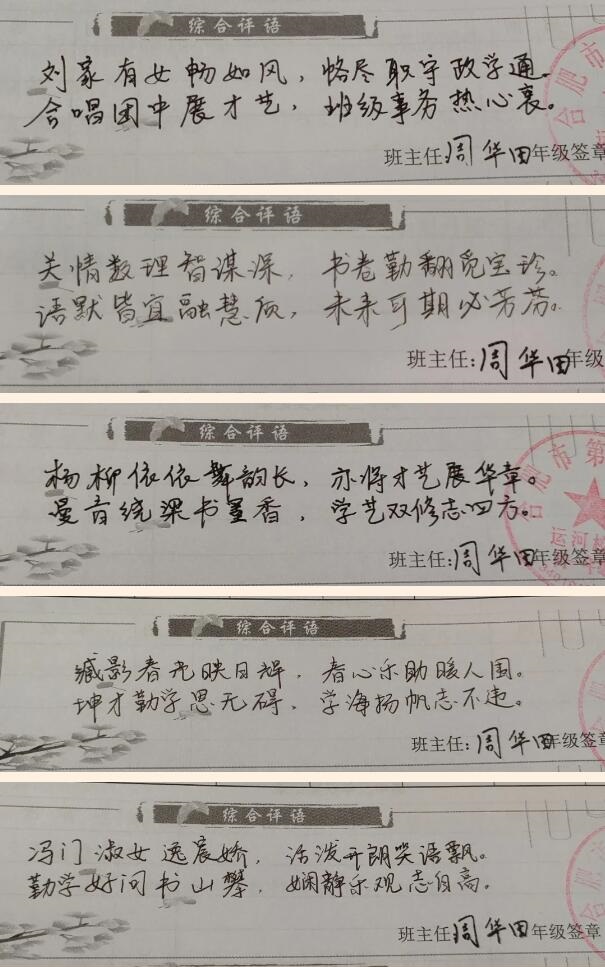 综合评语
刘家有女畅如风，恪尽职守政学通。
合唱团中展才艺，班级事务热心衷。
班主任：周华田年级签章
合肥
综合评语
关情数理智谋深，书卷勤翻觅宝珍。
语默皆宜融慧质，未来可期必芳芬。
班主任：周华田年级
综合评语
杨柳依依舞韵长，亦将才艺展华章。
曼音绕梁书墨香，学艺双修志四方。
合肥市第
运河
班主任：周华田年级签章
综合评语
臧影春光映日辉，春心乐助暖人围。
坤才勤学思无碍，学海扬帆志不违。
班主任：周华田年级签章
综合评语
冯门淑女逸宸娇，活泼开朗笑语飘。
勤学好问书山攀，娴静乐观志自高。
班主任：周华田年级签章